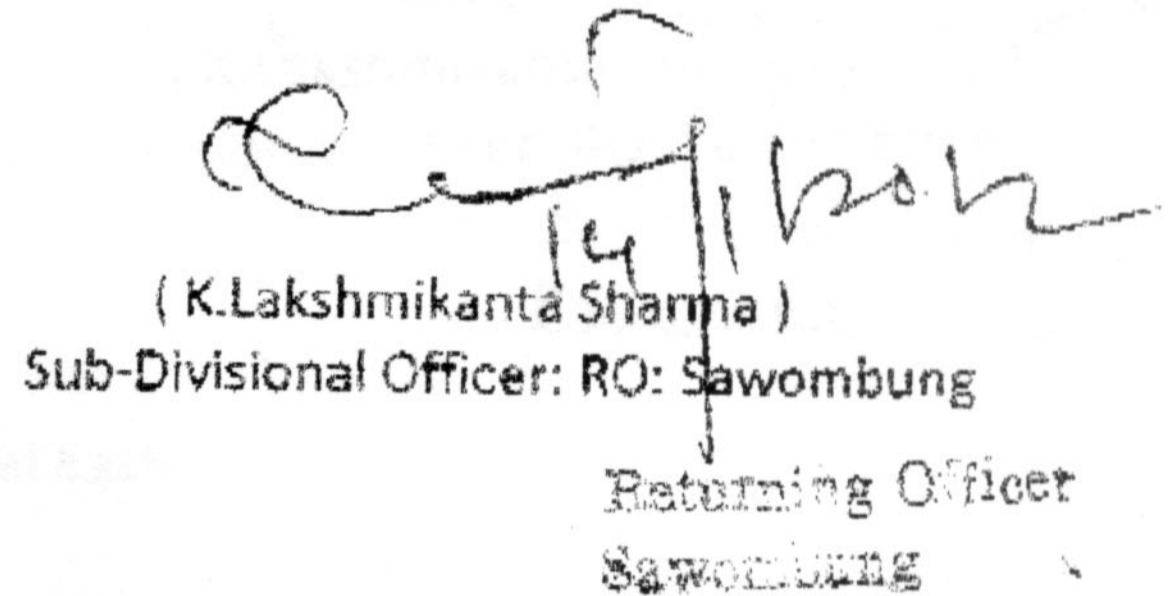 ( K.Lakshmikanta Sharma )
Sub-Divisional Officer: RO: Sawombung
Returning Officer
Sawombung